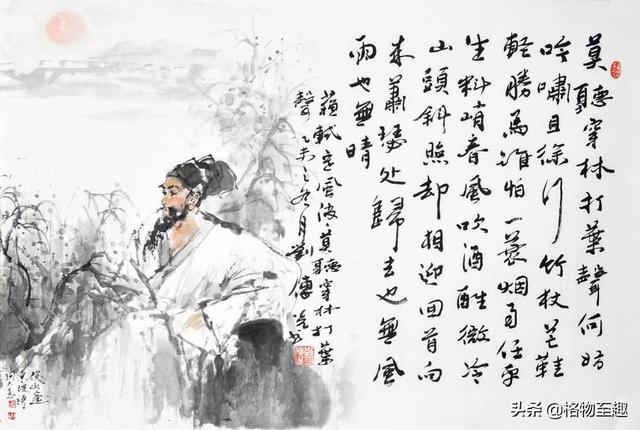 莫聽穿林打葉聲何妨
吟嘯且徐行竹杖芒鞋
輕勝馬誰怕一蓑烟雨任平
生料峭春風吹酒醒微冷
山頭斜照却相迎回首向
来蕭瑟处歸去也無風
雨也無晴
蘇軾定風波莫聽穿林打葉
聲乙未之冬月劉傳
头条 @格物至趣